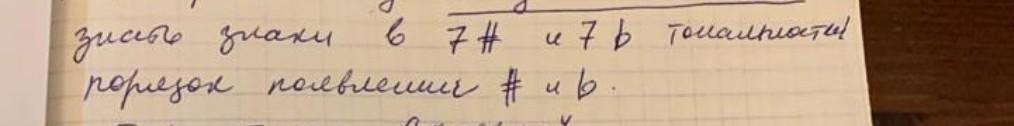 знать знаки в 7 # и 7 b тональностях
порядок появления # и b.